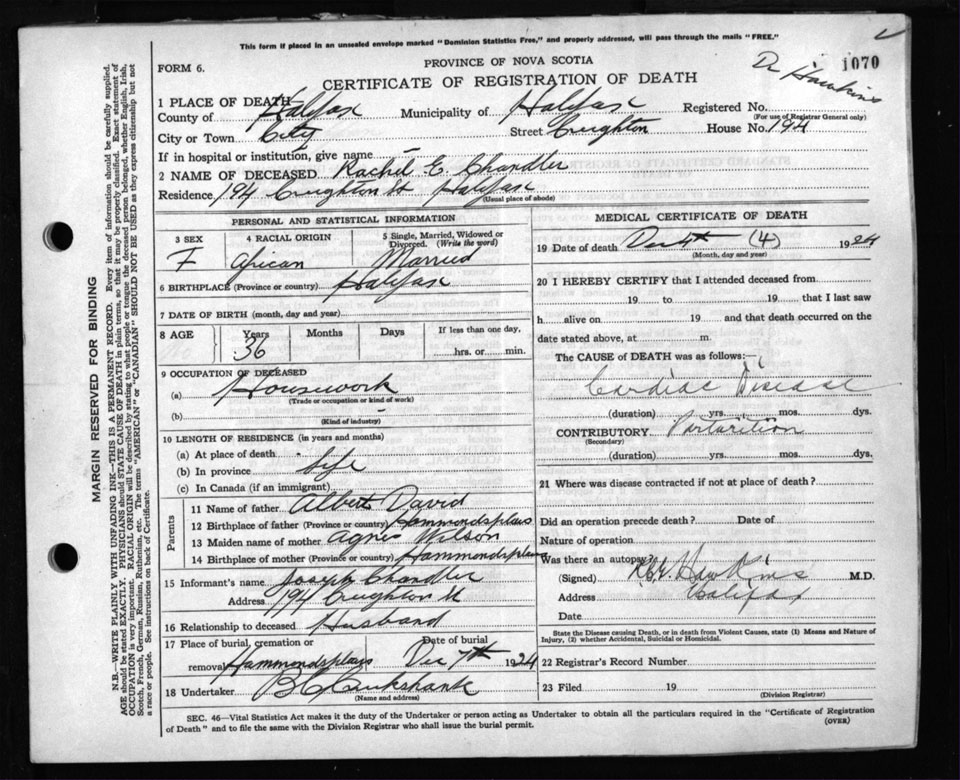 This form if placed in an unsealed envelope marked "Dominion Statistics Free," and properly addressed, will pass through the mails "FREE."
FORM 6.
PROVINCE OF NOVA SCOTIA
CERTIFICATE OF REGISTRATION OF DEATH
Dr Hawkins
1070
1 PLACE OF DEATH
County of Halifax Municipality of Halifax Registered No.
(For use of Registrar General only)
City or Town City Street Creighton House No. 194
If in hospital or institution, give name
2 NAME OF DECEASED Rachel E. Chandler
Residence 194 Creighton St Halifax
(Usual place of abode)
PERSONAL AND STATISTICAL INFORMATION
3 SEX
F
4 RACIAL ORIGIN
African
5 Single, Married, Widowed or Divorced. (Write the word)
Married
6 BIRTHPLACE (Province or country) Halifax
7 DATE OF BIRTH (month, day and year)
8 AGE Years Months Days If less than one day,
36 hrs. or min.
9 OCCUPATION OF DECEASED
(a) Housework
(Trade or occupation or kind of work)
(b)
(Kind of industry)
10 LENGTH OF RESIDENCE (in years and months)
(a) At place of death -
(b) In province life
(c) In Canada (if an immigrant)
Parents
11 Name of father Albert David
12 Birthplace of father (Province or country) Hammondsplains
13 Maiden name of mother Agnes Wilson
14 Birthplace of mother (Province or country) Hammondsplains
15 Informant's name Joseph Chandler
Address 194 Creighton St
16 Relationship to deceased Husband
17 Place of burial, cremation or removal Hammondsplains Date of burial Dec 7th 1924
18 Undertaker
(Name and address)
MEDICAL CERTIFICATE OF DEATH
19 Date of death Dec 4th (4) 1924
(Month, day and year)
20 I HEREBY CERTIFY that I attended deceased from
19 to 19 that I last saw
h alive on 19 and that death occurred on the
date stated above, at m.
The CAUSE of DEATH was as follows:—
Cardiac Disease
(duration) yrs. mos. dys.
CONTRIBUTORY Parturition
(Secondary)
(duration) yrs. mos. dys.
21 Where was disease contracted if not at place of death?
Did an operation precede death? Date of
Nature of operation
Was there an autopsy?
(Signed) Hawkins M.D.
Address Halifax
Date
State the Disease causing Death, or in death from Violent Causes, state (1) Means and Nature of Injury, (2) whether Accidental, Suicidal or Homicidal.
22 Registrar's Record Number
23 Filed 19
(Division Registrar)
SEC. 46—Vital Statistics Act makes it the duty of the Undertaker or person acting as Undertaker to obtain all the particulars required in the "Certificate of Registration
of Death" and to file the same with the Division Registrar who shall issue the burial permit.
(OVER)
MARGIN RESERVED FOR BINDING
N.B.—WRITE PLAINLY WITH UNFADING INK—THIS IS A PERMANENT RECORD. Every item of information should be carefully supplied.
AGE should be stated EXACTLY. PHYSICIANS should STATE CAUSE OF DEATH in plain terms, so that it may be properly classified. Exact statement of
OCCUPATION is very important. RACIAL ORIGIN will be described by stating to what people or tongue the deceased person belonged, whether English, Irish,
Scotch, French, German, Russian, Ruthenian, etc. The terms "AMERICAN" or "CANADIAN" SHOULD NOT BE USED as they express citizenship but not
a race or people. See instructions on back of Certificate.